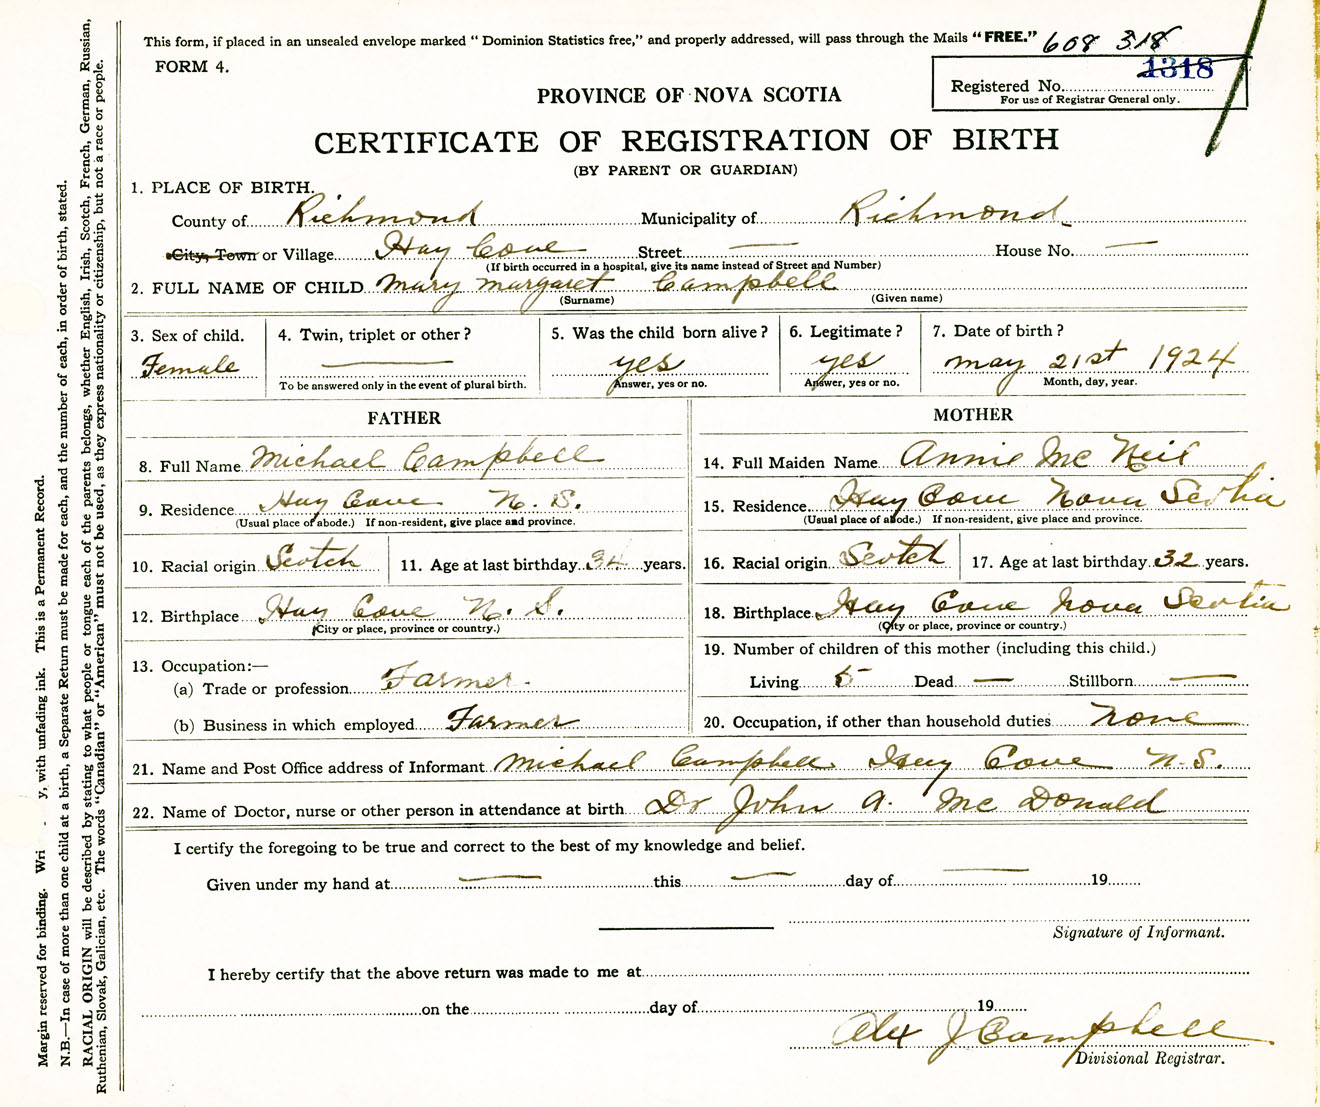 This form, if placed in an unsealed envelope marked " Dominion Statistics free," and properly addressed, will pass through the Mails "FREE." 608 318
FORM 4.
1318
Registered No.
For use of Registrar General only.
PROVINCE OF NOVA SCOTIA
CERTIFICATE OF REGISTRATION OF BIRTH
(BY PARENT OR GUARDIAN)
1. PLACE OF BIRTH.
County of Richmond Municipality of Richmond
City, Town or Village Hay Cove Street — House No. —
(If birth occurred in a hospital, give its name instead of Street and Number)
2. FULL NAME OF CHILD Mary Margaret Campbell
(Surname) (Given name)
3. Sex of child. 4. Twin, triplet or other? 5. Was the child born alive? 6. Legitimate? 7. Date of birth?
Female — yes yes May 21st 1924
To be answered only in the event of plural birth. Answer, yes or no. Answer, yes or no. Month, day, year.
FATHER MOTHER
8. Full Name Michael Campbell 14. Full Maiden Name Annie Mc Neil
9. Residence Hay Cove N. S. 15. Residence Hay Cove Nova Scotia
(Usual place of abode.) If non-resident, give place and province. (Usual place of abode.) If non-resident, give place and province.
10. Racial origin Scotch 11. Age at last birthday 34 years. 16. Racial origin Scotch 17. Age at last birthday 32 years.
12. Birthplace Hay Cove N. S. 18. Birthplace Hay Cove Nova Scotia
(City or place, province or country.) (City or place, province or country.)
13. Occupation:— 19. Number of children of this mother (including this child.)
(a) Trade or profession Farmer. Living 5 Dead — Stillborn —
(b) Business in which employed Farmer 20. Occupation, if other than household duties none
21. Name and Post Office address of Informant Michael Campbell Hay Cove N.S.
22. Name of Doctor, nurse or other person in attendance at birth Dr John A. Mc Donald
I certify the foregoing to be true and correct to the best of my knowledge and belief.
Given under my hand at — this — day of — 19
Signature of Informant.
I hereby certify that the above return was made to me at
on the day of 19
Alex J Campbell
Divisional Registrar.
Margin reserved for binding. Wri - y, with unfading ink. This is a Permanent Record.
N.B.—In case of more than one child at a birth, a Separate Return must be made for each, and the number of each, in order of birth, stated.
RACIAL ORIGIN will be described by stating to what people or tongue each of the parents belongs, whether English, Irish, Scotch, French, German, Russian,
Ruthenian, Slovak, Galician, etc. The words "Canadian" or "American" must not be used, as they express nationality or citizenship, but not a race or people.